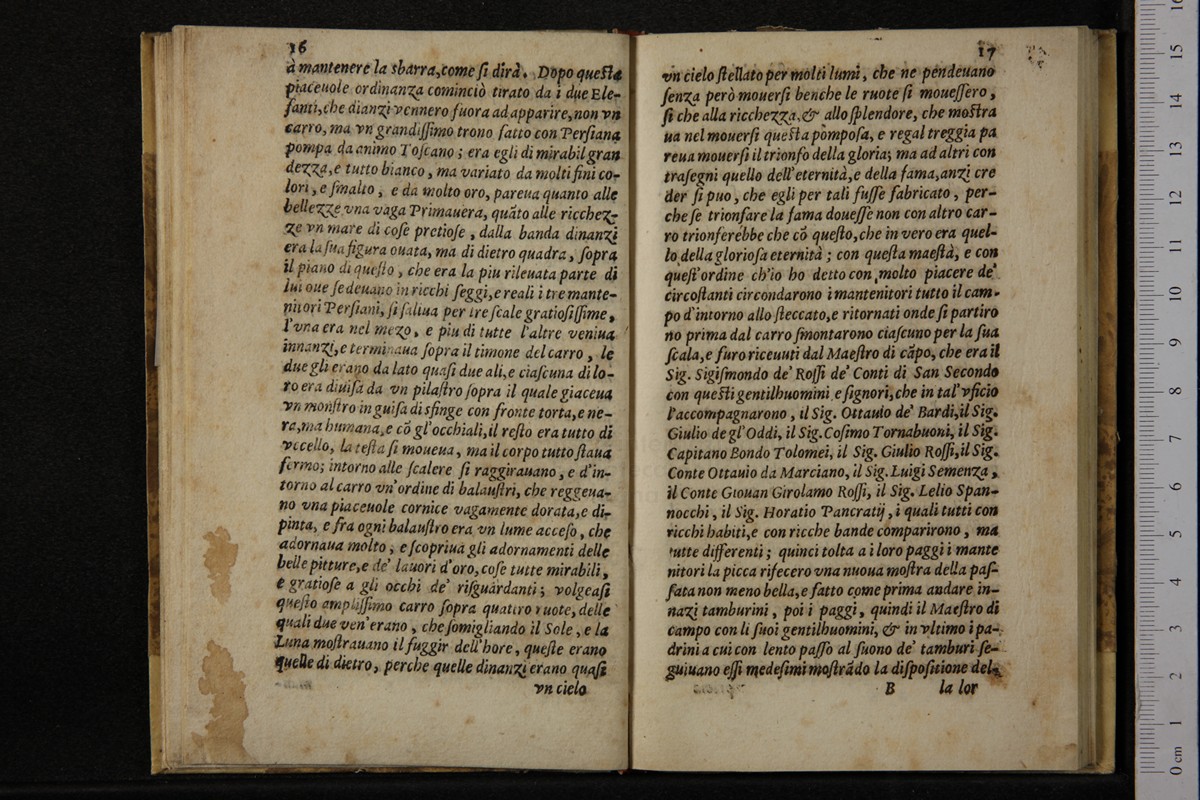 16
à mantenere la sbarra, come ſi dirà. Dopo queſta
piaceuole ordinanza cominciò tirato da i due Ele-
fanti, che dianzi vennero fuora ad apparire, non vn
carro, ma vn grandiſſimo trono fatto con Perſiana
pompa da animo Toſcano; era egli di mirabil gran
dezza, e tutto bianco, ma variato da molti fini co-
lori, e ſmalto, e da molto oro, pareua quanto alle
bellezze vna vaga Primauera, quãto alle ricchez-
ze vn mare di coſe pretioſe, dalla banda dinanzi
era la ſua figura ouata, ma di dietro quadra, ſopra
il piano di queſto, che era la piu rileuata parte di
lui oue ſedeuano in ricchi ſeggi, e reali i tre mante-
nitori Perſiani, ſi ſaliua per tre ſcale gratioſiſſime,
l'vna era nel mezo, e piu di tutte l'altre veniua
innanzi, e terminaua ſopra il timone del carro, le
due gli erano da lato quaſi due ali, e ciaſcuna di lo-
ro era diuiſa da vn pilaſtro ſopra il quale giaceua
vn monſtro in guiſa di sfinge con fronte torta, e ne-
ra, ma humana, e cõ gl'occhiali, il reſto era tutto di
vccello, la teſta ſi moueua, ma il corpo tutto ſtaua
fermo; intorno alle ſcalere ſi raggirauano, e d'in-
torno al carro vn'ordine di balauſtri, che reggeua-
no vna piaceuole cornice vagamente dorata, e di-
pinta, e fra ogni balauſtro era vn lume acceſo, che
adornaua molto, e ſcopriua gli adornamenti delle
belle pitture, e de' lauori d'oro, coſe tutte mirabili,
e gratioſe a gli occhi de' riſguardanti; volgeaſi
queſto ampliſſimo carro ſopra quattro ruote, delle
quali due ven'erano, che ſomigliando il Sole, e la
Luna moſtrauano il fuggir dell'hore, queſte erano
quelle di dietro, perche quelle dinanzi erano quaſi
vn cielo
17
vn cielo ſtellato per molti lumi, che ne pendeuano
ſenza però mouerſi benche le ruote ſi moueſſero,
ſi che alla ricchezza, & allo ſplendore, che moſtra
ua nel mouerſi queſta pompoſa, e regal treggia pa
reua mouerſi il trionfo della gloria; ma ad altri con
traſegni quello dell'eternità, e della fama, anzi cre
der ſi puo, che egli per tali fuſſe fabricato, per-
che ſe trionfare la fama doueſſe non con altro car-
ro trionferebbe che cõ queſto, che in vero era quel-
lo della glorioſa eternità; con queſta maeſtà, e con
queſt'ordine ch'io ho detto con molto piacere de'
circoſtanti circondarono i mantenitori tutto il cam-
po d'intorno allo ſteccato, e ritornati onde ſi partiro
no prima dal carro ſmontarono ciaſcuno per la ſua
ſcala, e furo riceuuti dal Maeſtro di cãpo, che era il
Sig. Sigiſmondo de' Roſſi de' Conti di San Secondo
con queſti gentilhuomini e ſignori, che in tal'vficio
l'accompagnarono, il Sig. Ottauio de' Bardi, il Sig.
Giulio de gl'Oddi, il Sig. Coſimo Tornabuoni, il Sig.
Capitano Bondo Tolomei, il Sig. Giulio Roſſi, il Sig.
Conte Ottauio da Marciano, il Sig. Luigi Semenza,
il Conte Giouan Girolamo Roſſi, il Sig. Lelio Span-
nocchi, il Sig. Horatio Pancratij, i quali tutti con
ricchi habiti, e con ricche bande comparirono, ma
tutte differenti; quinci tolta a i loro paggi i mante
nitori la picca rifecero vna nuoua moſtra della paſ-
ſata non meno bella, e fatto come prima andare in-
nãzi tamburini, poi i paggi, quindi il Maeſtro di
campo con li ſuoi gentilhuomini, & in vltimo i pa-
drini a cui con lento paſſo al ſuono de' tamburi ſe-
guiuano eſſi medeſimi moſtrãdo la diſpoſitione del-
B la lor
0 cm 1 2 3 4 5 6 7 8 9 10 11 12 13 14 15 16